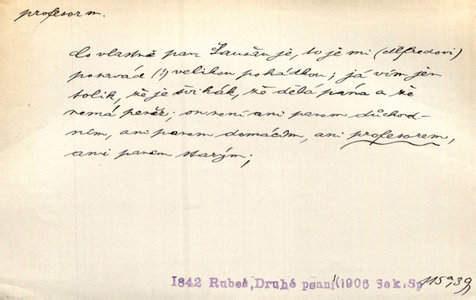 profesor m.
Co vlastně pan Šaušu je, to je mi (Alfredovi)
posavád (!) velikou pohádkou; já vím jen
tolik, že je švihák, že dělá pána a že
nemá peněz; on není ani panem důchod-
ním, ani panem domácím, ani profesorem,
ani panem starým;
1842 Rubeš, Druhé psaní (1906 Sek. Sp
115a, 39)